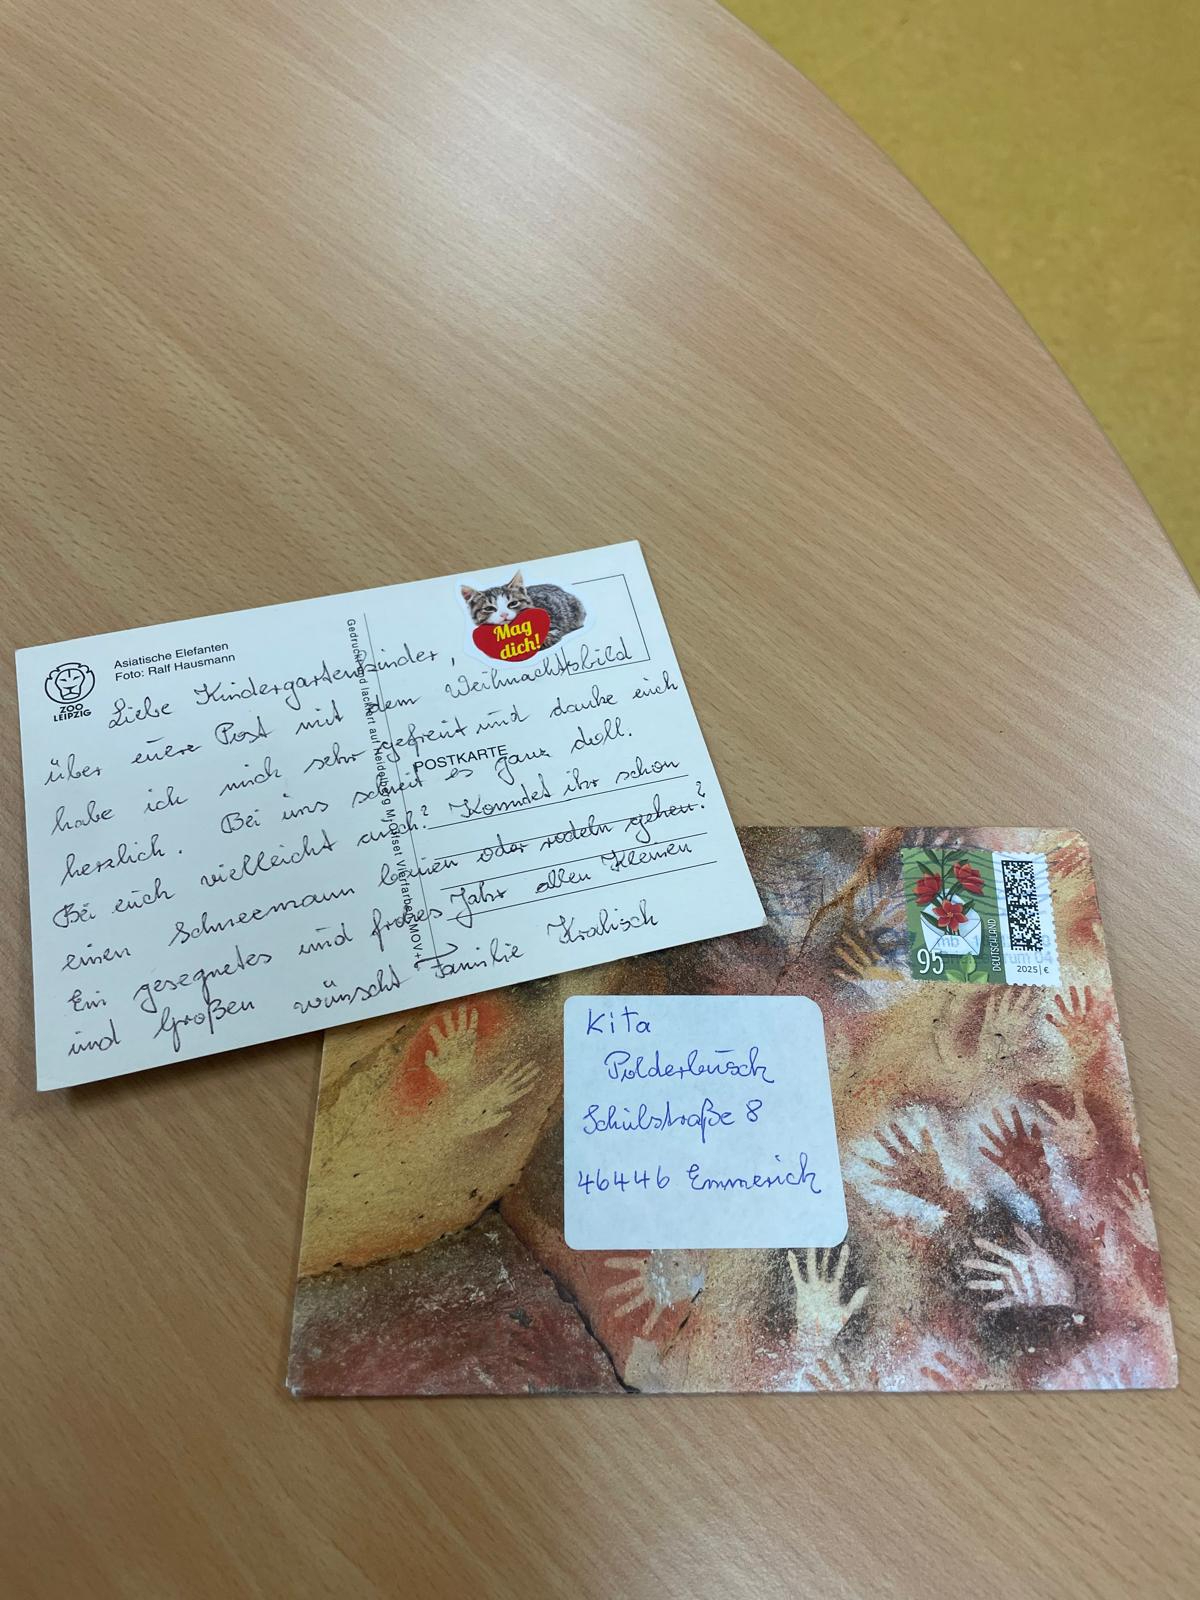 ZOO
LEIPZIG
Asiatische Elefanten
Foto: Ralf Hausmann
Mag
dich!
Liebe Kindergartenkinder,
über eure Post mit dem Weihnachtsbild
habe ich mich sehr gefreut und danke euch
herzlich. Bei uns schneit es ganz doll.
Bei euch vielleicht auch? Konndet ihr schon
einen Schneemann bauen oder rodeln gehen?
Ein gesegnetes und frohes Jahr allen Kleinen
und Großen wünscht Familie Kralisch
POSTKARTE
Gedruckt und lackiert auf Heidelberg Offset Vierfarben MOV
95
DEUTSCHLAND
2025 | €
Kita
Polderbusch
Schulstraße 8
46446 Emmerich